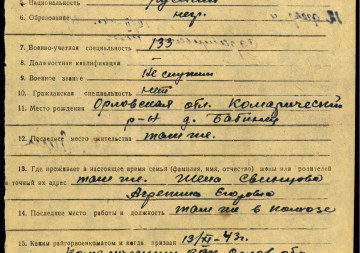 5. Национальность Русский
6. Образование негр.
7. Военно-учетная специальность 133
8. Должностная квалификация
9. Военное звание Не служил
10. Гражданская специальность нет
11. Место рождения Орловская обл. Комаричский
р-н д. Бабинец
12. Последнее место жительства там же.
13. Где проживает в настоящее время семья (фамилия, имя, отчество) жены или родителей
и точный их адрес там же. Жена Свинцова
Агрепина Егоровна
14. Последнее место работы и должность там же в колхозе
15. Каким райгорвоенкоматом и когда призван 13/XI-43г.
Комаричским РВК Орлов. обл.